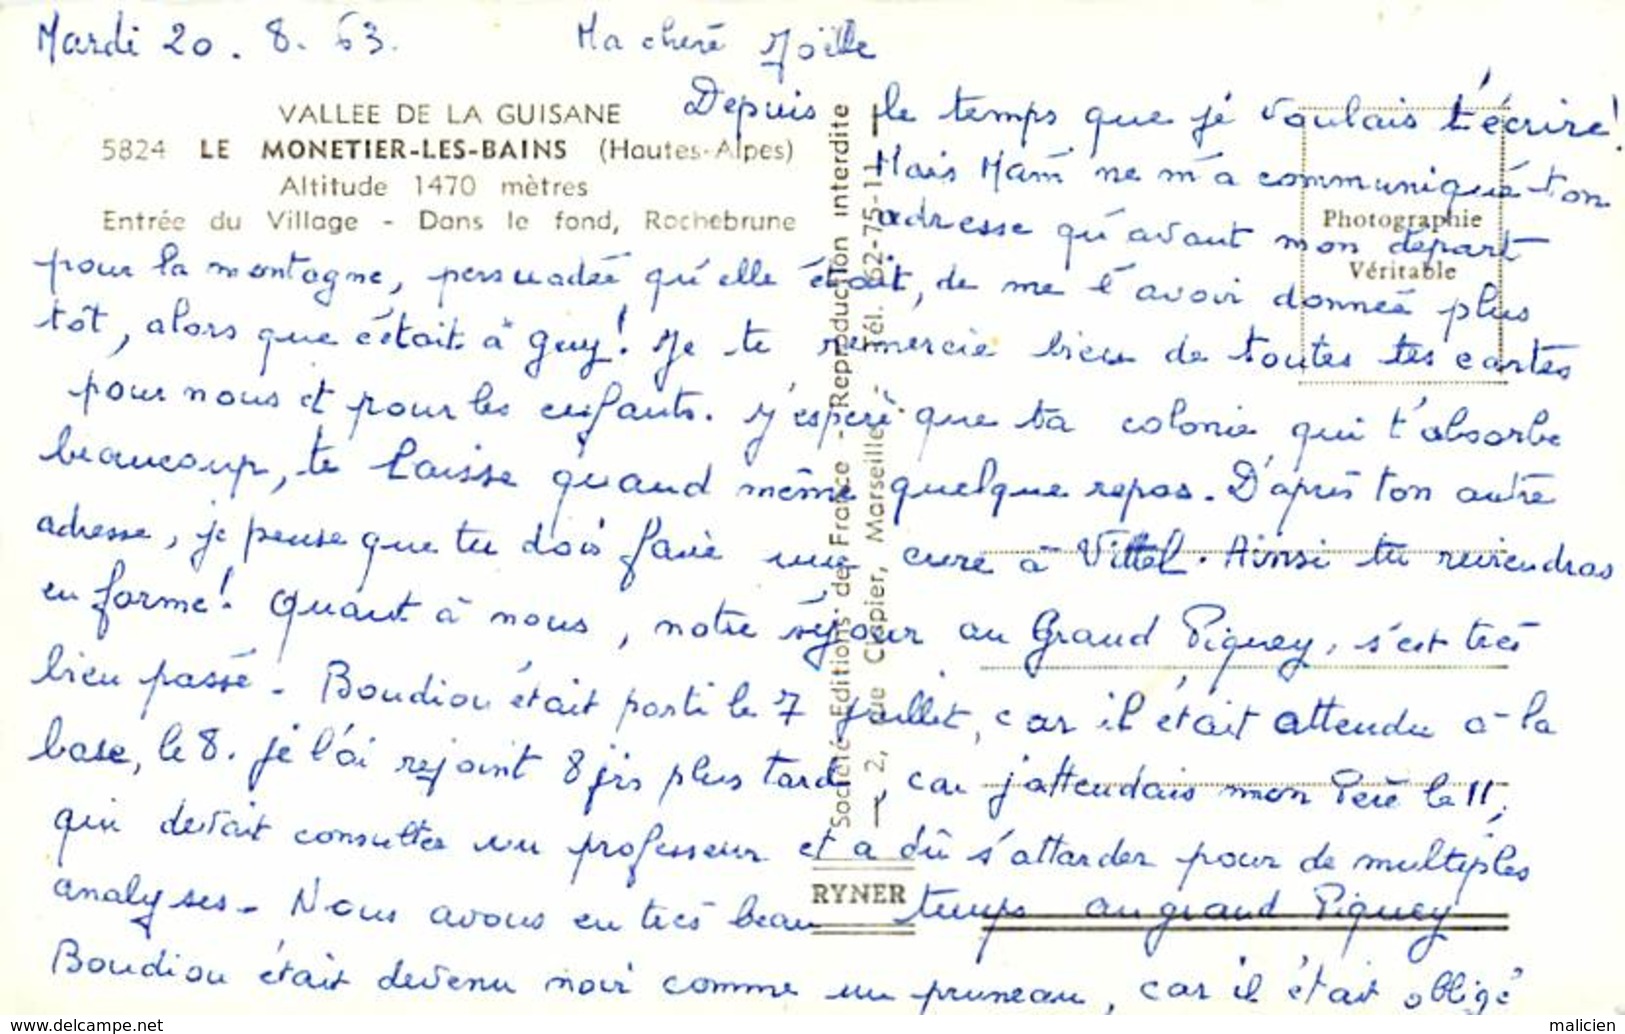 Mardi 20. 8. 63. Ma chère Joëlle
VALLEE DE LA GUISANE
5824 LE MONETIER-LES-BAINS (Hautes-Alpes)
Altitude 1470 mètres
Entrée du Village - Dans le fond, Rochebrune
Depuis le temps que je voulais t'écrire!
Mais Mam ne m'a communiqué ton
adresse qu'avant mon départ
pour la montagne, persuadée qu'elle était, de me l'avoir donnée plus
tôt, alors que c'était à Guy! Je te remercie bien de toutes tes cartes
pour nous et pour les enfants. J'espère que ta colonie qui t'absorbe
beaucoup, te laisse quand même quelque repos. D'après ton autre
adresse, je pense que tu dois faire une cure à Vittel. Ainsi tu reviendras
en forme! Quant à nous, notre séjour au Grand Piquey, s'est très
bien passé - Boudiou était parti le 7 juillet, car il était attendu à la
base, le 8. Je l'ai rejoint 8 jrs plus tard, car j'attendais mon Père le 11,
qui devait consulter un professeur et a dû s'attarder pour de multiples
analyses - Nous avons eu très beau temps au grand Piquey
Boudiou était devenu noir comme un pruneau, car il était obligé
Photographie
Véritable
Société Editions de France - Reproduction interdite
— 2, rue Clapier, Marseille - Tél. 62-75-11 —
RYNER
http://www.delcampe.net
malicien